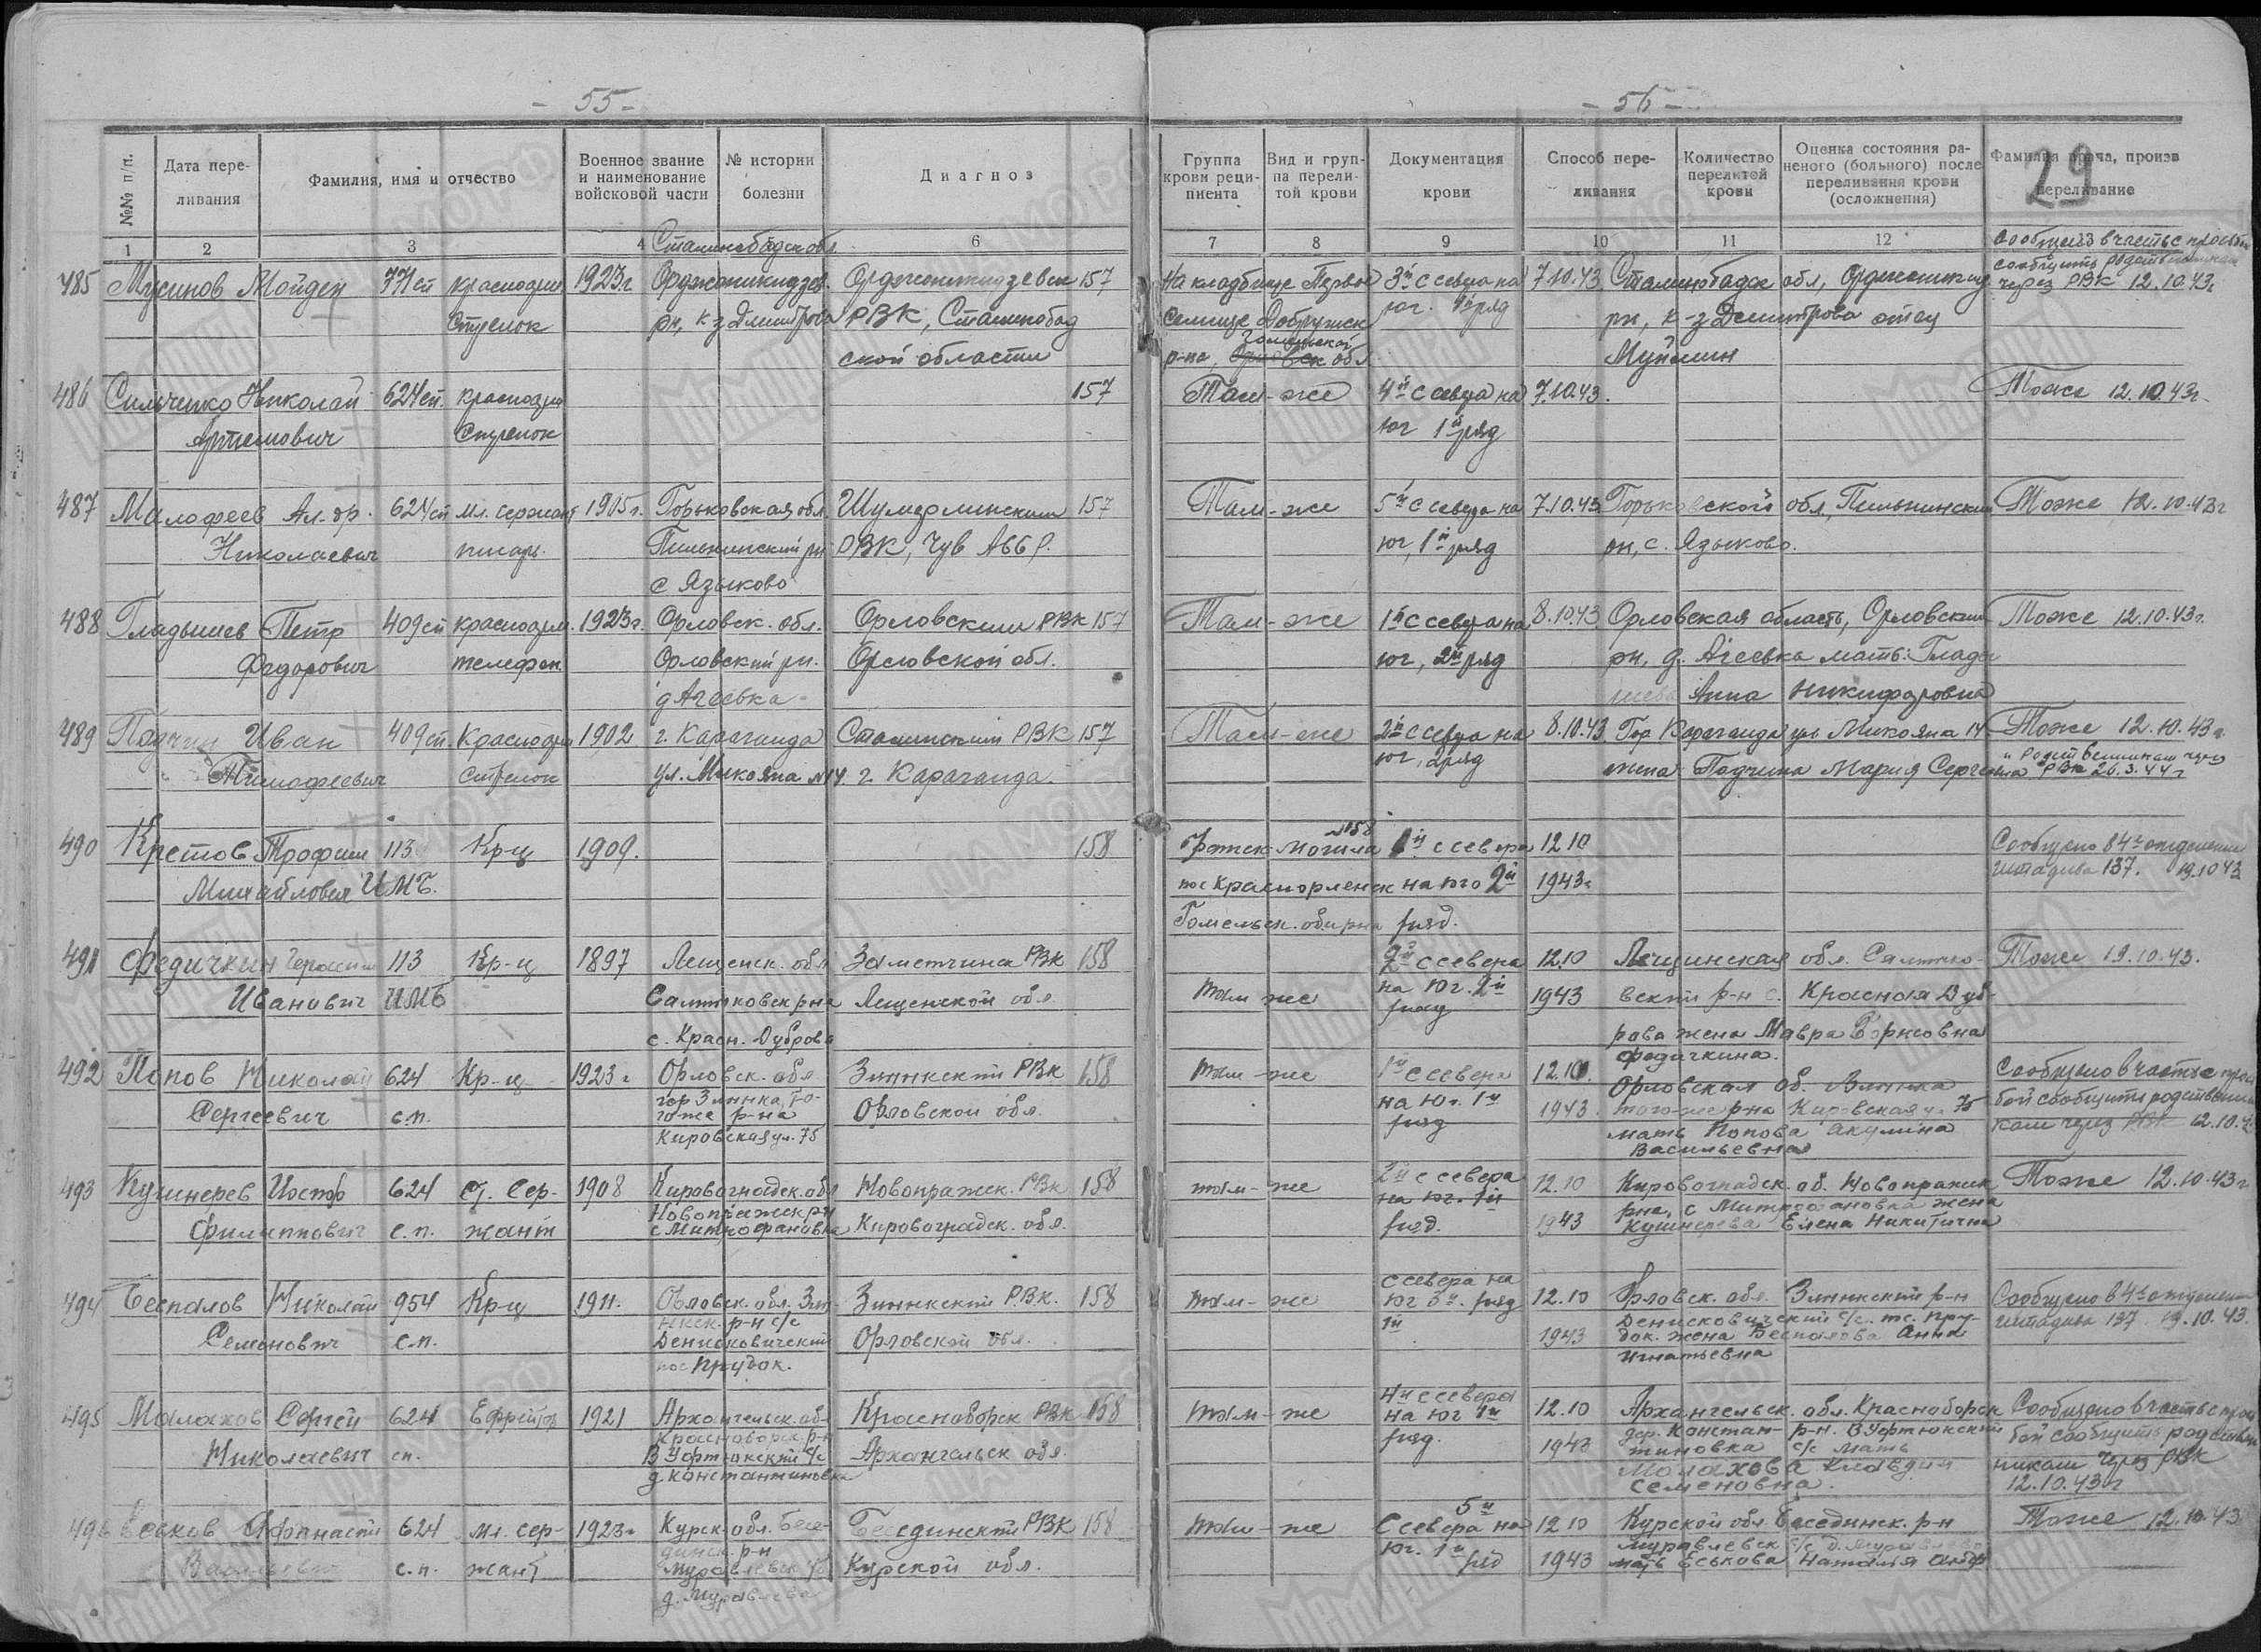 - 55 -
№№ п/п.
Дата пере-
ливания
Фамилия, имя и отчество
Военное звание
и наименование
войсковой части
№ истории
болезни
Диагноз
1 2 3 4 6
Сталинабадск обл.
485 Мусинов Мойден 771 сп красноарм. 1923 г Орджоникидзев. Орджоникидзевск 157
стрелок рн, к-з Димитрова РВК, Сталинобад
ской области
486 Сильченко Николай 624 сп. красноарм 157
Артемович стрелок
487 Малофеев Ал-др. 624 сп мл. сержант 1905 г. Горьковская обл. Шумерлинским 157
Николаевич писарь. Пильнинский рн РВК, Чув АССР.
с Языково
488 Гладышев Петр 409 сп красноарм. 1923 г. Орловск. обл. Орловским РВК 157
Федорович телефон. Орловский рн. Орловской обл.
д Агеевка
489 Подчин Иван 409 сп Красноарм 1902 г. Караганда Сталинский РВК 157
Тимофеевич стрелок ул. Микояна №14. г. Караганда.
490 Кретов Трофим 113 Кр-ц 1909. 158
Михайлович ИМБ.
491 Федичкин Герасим 113 Кр-ц 1897 Пензенск. обл Заметчина РВК 158
Иванович ИМБ Салтыковск р-на Пензенской обл
с. Красн. Дуброва
492 Попов Николай 624 Кр-ц 1923 г Орловск. обл Злынкский РВК 158
Сергеевич с.п. гор Злынка, то-
го-же р-на Орловской обл.
Кировская ул. 75
493 Кушнерев Нестор 624 Ст. Сер- 1908 Кировоградск. обл Новопражск. РВК 158
Филиппович с.п. жант Новопражск р-н
с Митрофановка Кировоградск. обл.
494 Беспалов Николай 954 Кр-ц 1911. Орловск. обл. Злы- Злынкский РВК. 158
нкск. р-н с/с
Семенович с.п. Денисковичский Орловской обл.
пос Прудок.
495 Малахов Сергей 624 Ефрейтор 1921 Архангельск. об- Красноборск РВК 158
Красноборск. р-н
Николаевич сп. В Уфтюкский с/с Архангельск обл.
д. Константиновка
496 Еськов Афанасий 624 мл. сер- 1923 г Курск. обл. Бесе- Бесединский РВК 158
динск. р-н
Васильевич с.п. жант Муравлевск с/с Курской обл.
д. Муравлева
- 56 -
Группа
крови реци-
пиента
Вид и груп-
па перели-
той крови
Документация
крови
Способ пере-
ливания
Количество
перелитой
крови
Оценка состояния ра-
неного (больного) после
переливания крови
(осложнения)
Фамилия врача, произв
переливание
29
7 8 9 10 11 12
Сообщено в часть с просьбой
сообщить родственникам
На кладбище Первое 3й с севера на 7.10.43 Сталинобадск обл, Орджоникид через РВК 12.10.43г
селище Добружск юг. 1й ряд рн, к-з Димитрова отец
Гомельской
р-на, обл Муймин
Там-же 4й с севера на 7.10.43. Тоже 12.10.43г.
юг 1й ряд
Там-же 5й с севера на 7.10.43 Горьковской обл, Пильнинский Тоже 12.10.43г
юг, 1й ряд рн, с. Языково.
Там-же 1й с севера на 8.10.43 Орловская область, Орловский Тоже 12.10.43г.
юг, 2й ряд рн, д. Агеевка мать: Глады
шева Анна Никифоровна
Там-же 2й с севера на 8.10.43 Гор Караганда ул Микояна 14 Тоже 12.10.43г.
юг, 2 ряд жена Подчина Мария Сергеевна и родственникам через
РВК 26.3.44г
№158
Братск. могила й с севера 12.10 Сообщено в 4е отделение
пос Красноорленск на юго 2й 1943г штадива 137. 19.10.43
Гомельск. обл рна ряд.
2й с севера 12.10 Пензинская обл. Салтыко- Тоже 19.10.43.
там же на Юг. 2й 1943 вский р-н с. Красная Дуб-
ряд
рова жена Мавра Борисовна
Федичкина.
там-же 1й с севера 12.10. Орловская об. Злынка Сообщено в часть с прось
на Юг. 1й 1943. того-же р-на Кировская у. 75 бой сообщить родственни
ряд мать Попова Акулина кам через РВК 12.10.4
Васильевна
там-же 2й с севера 12.10 Кировоградск. об. Новопражск Тоже 12.10.43г
на Юг. 1й рна, с Митрофановка жена
ряд. 1943 Кушнерева Елена Никитична
там-же с севера на 12.10 Орловск. обл. Злынкский р-н Сообщено в 4е отделение
Юг 3й. ряд Денисковичский с/с. пос. Пру- штадива 137 19.10.43.
1й 1943 док. жена Беспалова Анна
Игнатьевна
там-же 4й с севера 12.10 Архангельск. обл. Красноборск Сообщено в часть с прось
на Юг 1й дер. Констан- р-н. В Уфтюкский бой сообщить родствен
ряд. 1943 тиновка с/с мать никам через РВК
Малахова Клавдия 12.10.43г
Семеновна.
5й
там-же с севера на 12.10 Курской обл. Бесединск. р-н Тоже 12.10.43
Юг. 1й Муравлевск с/с д. Муравлева
ряд 1943 мать Еськова Наталья Андр